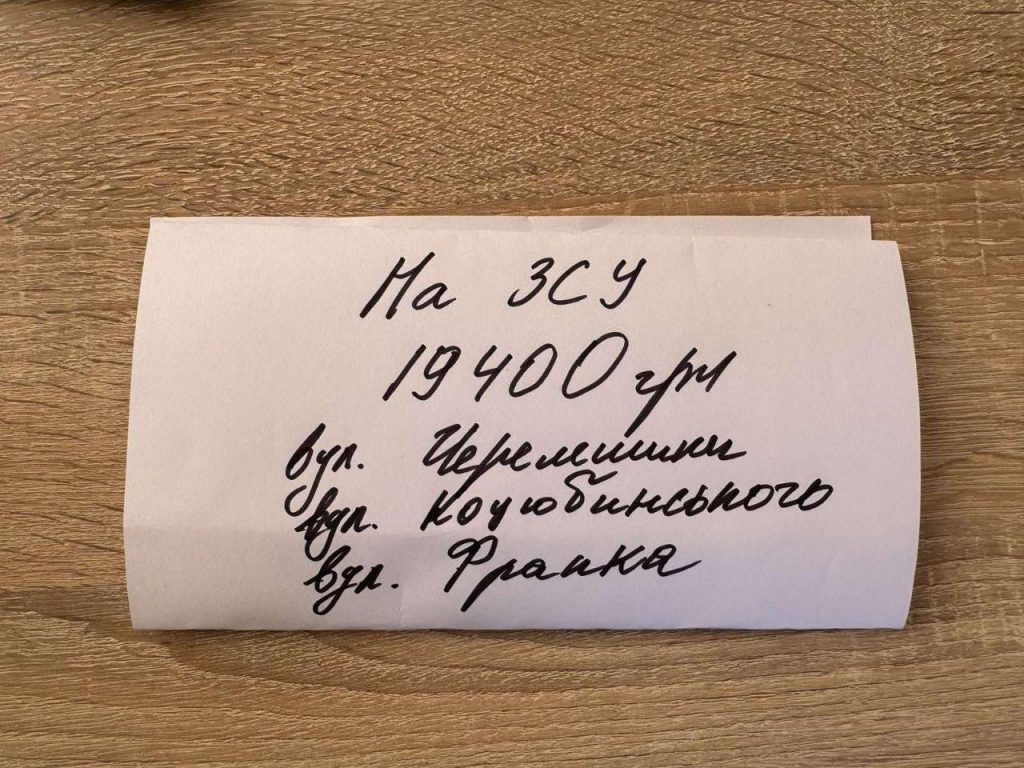 На ЗСУ
19400 грн
вул. Черемшини
вул. Коцюбинського
вул. Франка